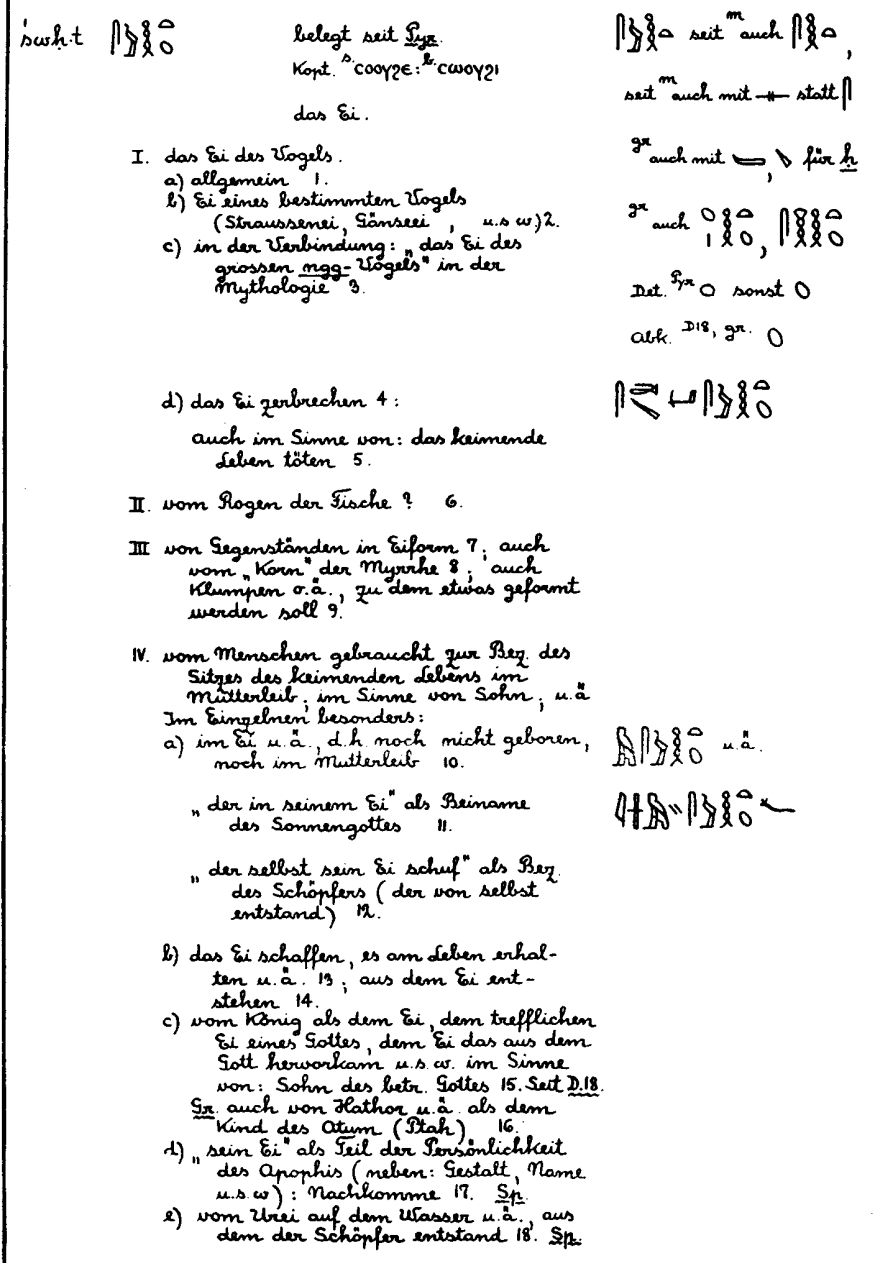 śwḥ.t 𓋴𓅱𓎛𓏏𓆇
belegt seit Pyr.
Kopt. ˢ·ⲥⲟⲟⲩϩⲉ : ᵇ·ⲥⲱⲟⲩϩⲓ
das Ei.
I. das Ei des Vogels.
a) allgemein 1.
b) Ei eines bestimmten Vogels
(Straussenei, Gänseei , u.s w)2.
c) in der Verbindung: „das Ei des
grossen ngg-Vogels" in der
Mythologie 3.
d) das Ei zerbrechen 4 :
auch im Sinne von: das keimende
Leben töten 5.
II. vom Rogen der Fische ? 6.
III von Gegenständen in Eiform 7; auch
vom „Korn" der Myrrhe 8 ; auch
Klumpen o.ä., zu dem etwas geformt
werden soll 9.
IV. vom Menschen gebraucht zur Bez. des
Sitzes des keimenden Lebens im
Mutterleib; im Sinne von Sohn; u.ä
Im Einzelnen besonders:
a) im Ei u.ä., d.h. noch nicht geboren,
noch im Mutterleib 10.
„der in seinem Ei" als Beiname
des Sonnengottes 11.
„der selbst sein Ei schuf" als Bez.
des Schöpfers (der von selbst
entstand) 12.
b) das Ei schaffen, es am Leben erhal-
ten u.ä. 13 ; aus dem Ei ent-
stehen 14.
c) vom König als dem Ei, dem trefflichen
Ei eines Gottes, dem Ei das aus dem
Gott hervorkam u.s.w. im Sinne
von: Sohn des betr. Gottes 15. Seit D.18.
Gr. auch von Hathor u.ä. als dem
Kind des Atum (Ptah) 16.
d) „sein Ei" als Teil der Persönlichkeit
des Apophis (neben: Gestalt, Name
u.s.w) : Nachkomme 17. Sp.
e) vom Urei auf dem Wasser u.ä., aus
dem der Schöpfer entstand 18. Sp.
seit ᵐ auch ,
seit ᵐ auch mit 𓊃 statt 𓋴
gr auch mit , für ḥ
gr auch ,
Det. Pyr sonst 𓆇
Abk. D18, gr. 𓆇
u.ä.